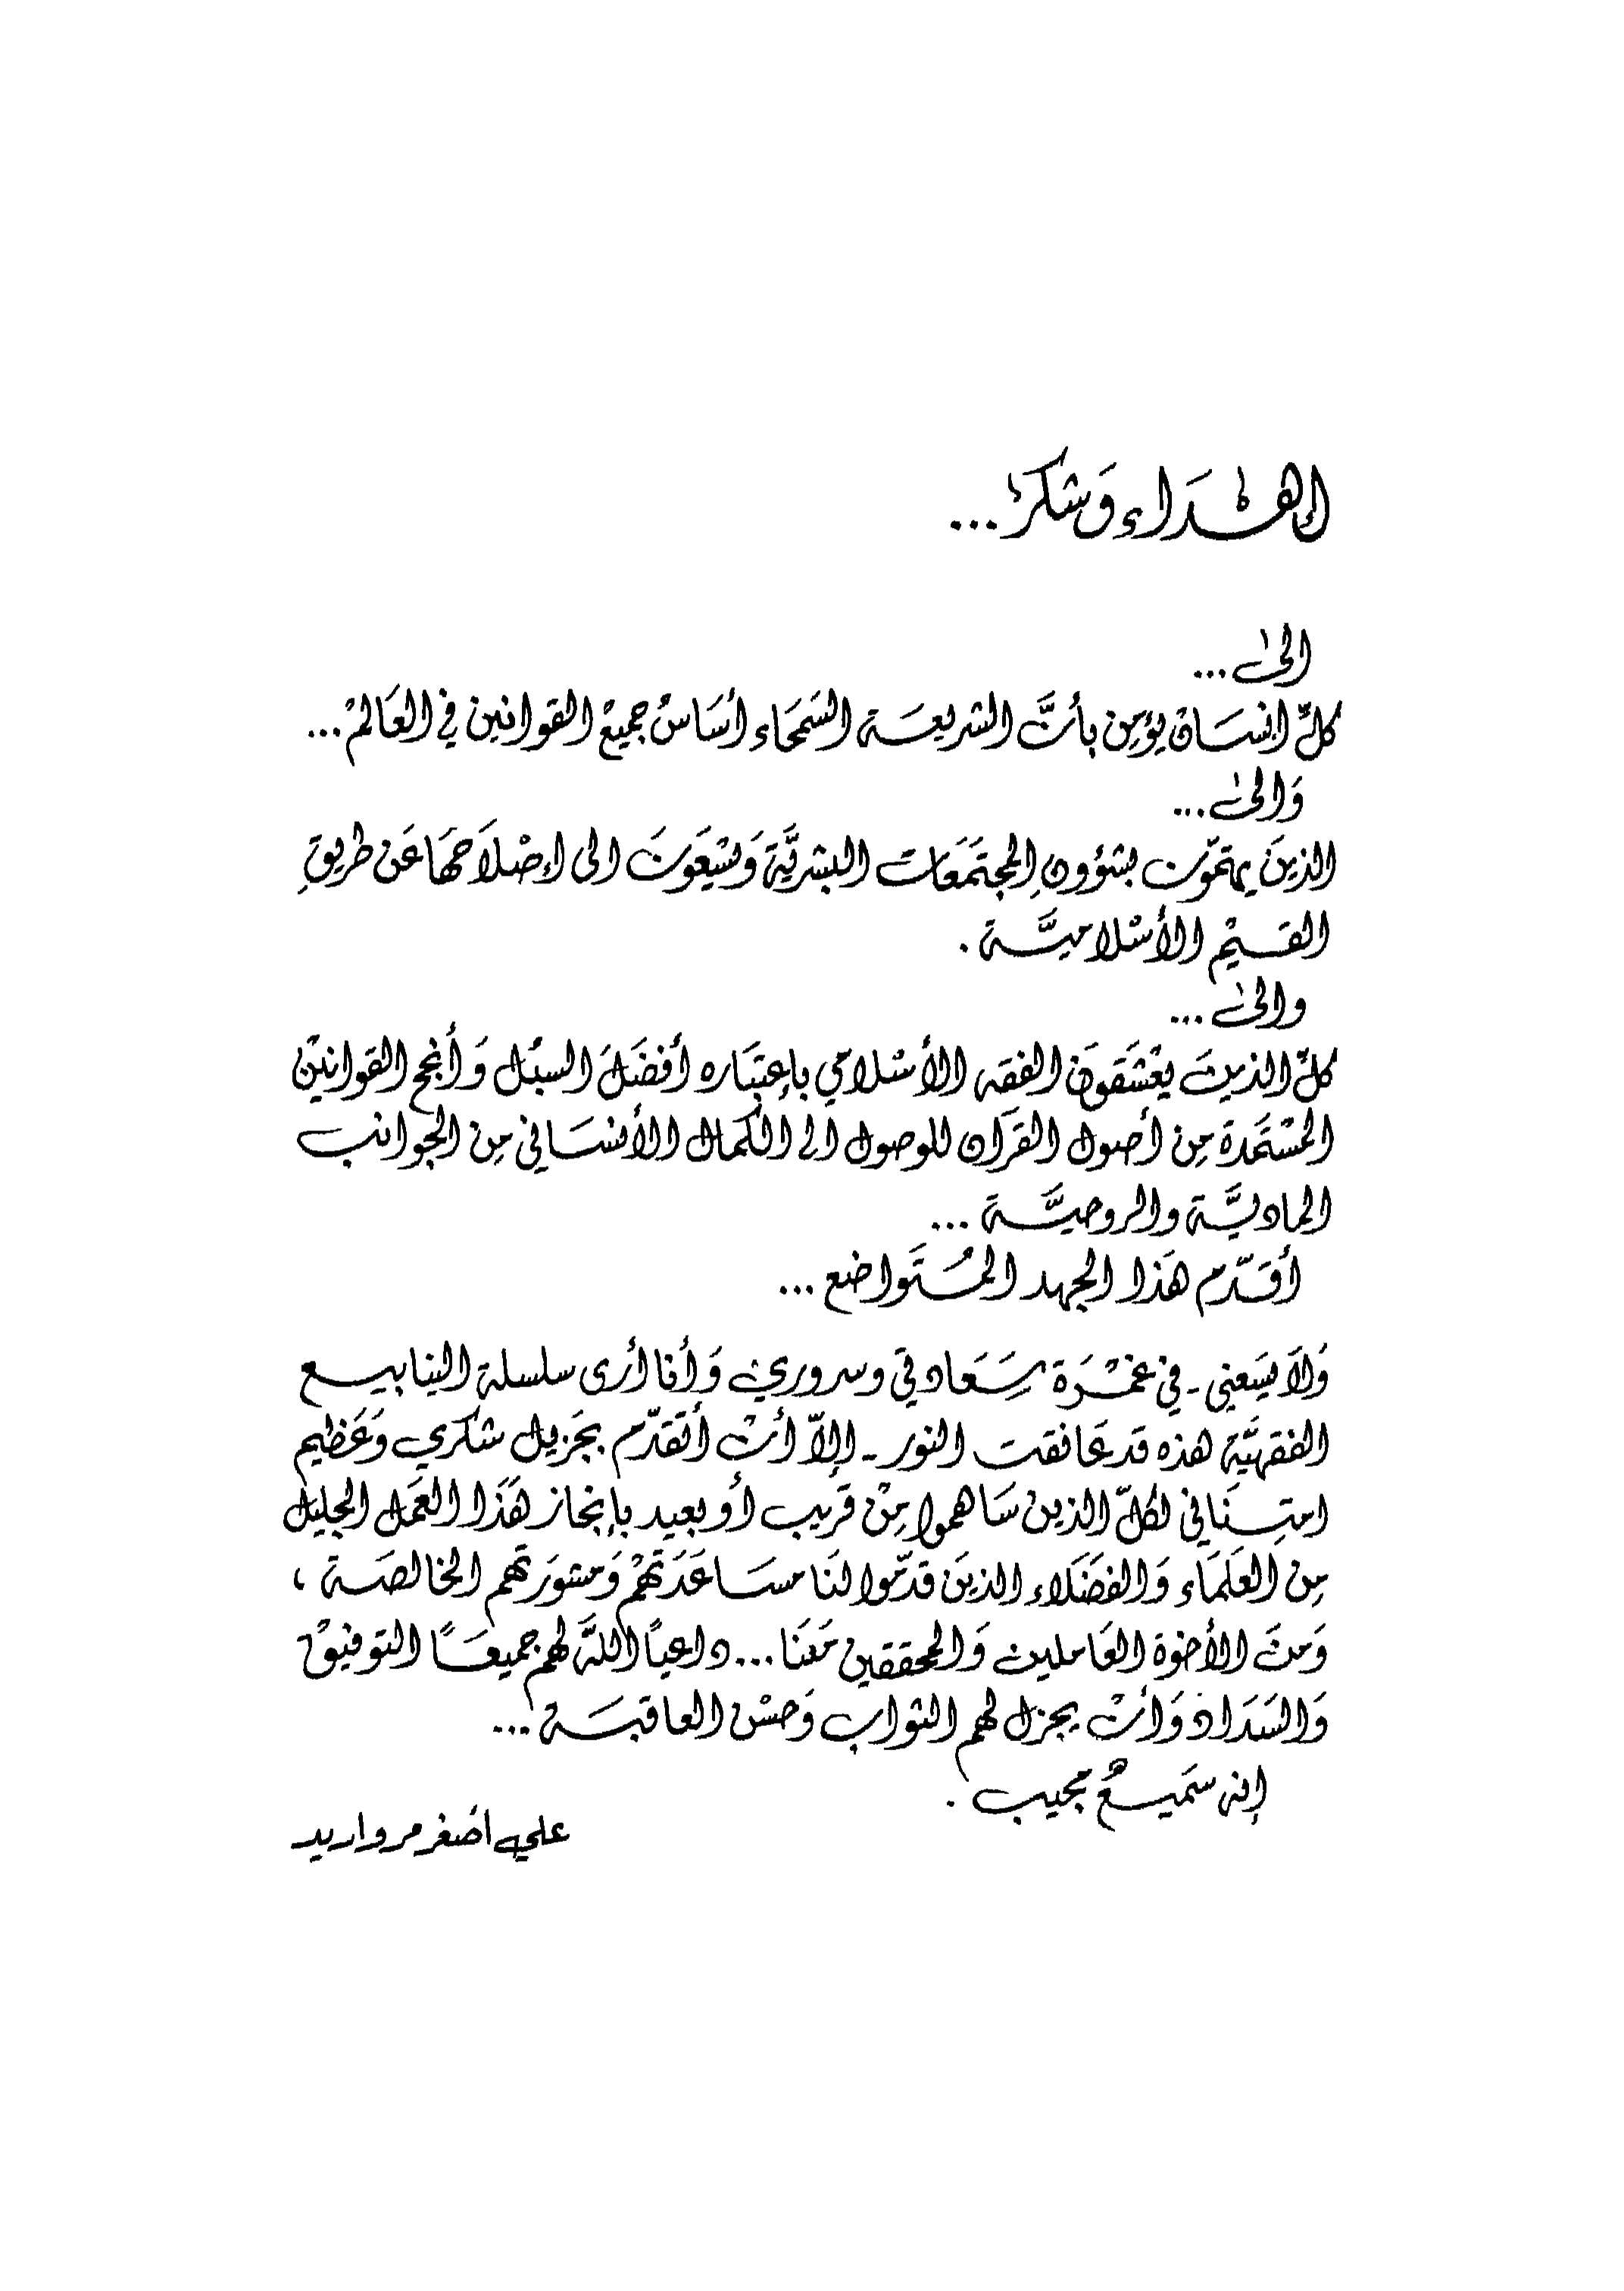 إهداء وَشكر ...
الىٰ ...
كلّ انسَان يؤمِن بأنَّ الشريعَة السَمحَاء أسَاسُ جميعْ القوانين في العَالمْ ...
وَالىٰ ...
الذينَ يهتمّون بشؤونِ المجتَمَعَات البشريَّة وَيسْعَونَ الى إصْلاَحهَا عَن طريقِ
القيَمْ الأسْلاميَّة .
والىٰ ...
كلّ الذينَ يعْشَقونَ الفقه الأسْلامّي بإعتبَاره أفضَلَ السبُل وَأنجح القوانينْ
المسْتَمَدة مِن أصول القرَآن للوصول الى الكمال الأنسَاني مِن الجوانب
الماديَّة والروحيَّة ...
أقدّم هَذا الجهد المُتَواضع ...
وَلاَ يسَعني ـ في غمْرَة سَعَادتي وسروري وَأنا أرى سلسلة الينابيع
الفقهيَّة هذه قد عَانقت النور ـ إلاّ أنْ أتَقدّم بجَزيل شكري وَعَظيم
امتِنَاني لكلّ الذين سَاهموا مِنْ قَريب أو بعيد بإنجاز هَذَا العَمَل الجليل
مِن العلَمَاء وَالفضَلاء الذينَ قدّموا لنَا مسَاعَدَتهمْ وَمشورَتهم الخالصَة ،
وَمنَ الأخوة العَاملين وَالمحققين مَعَنَا ... داعياً اللهَ لهم جميعَاً التوفيقْ
وَالسَدَاد وَأنْ يجزل لهم الثواب وَحسْن العاقبَة ...
إنه سَميعٌ مجيب .
علي أصغر مرواريد